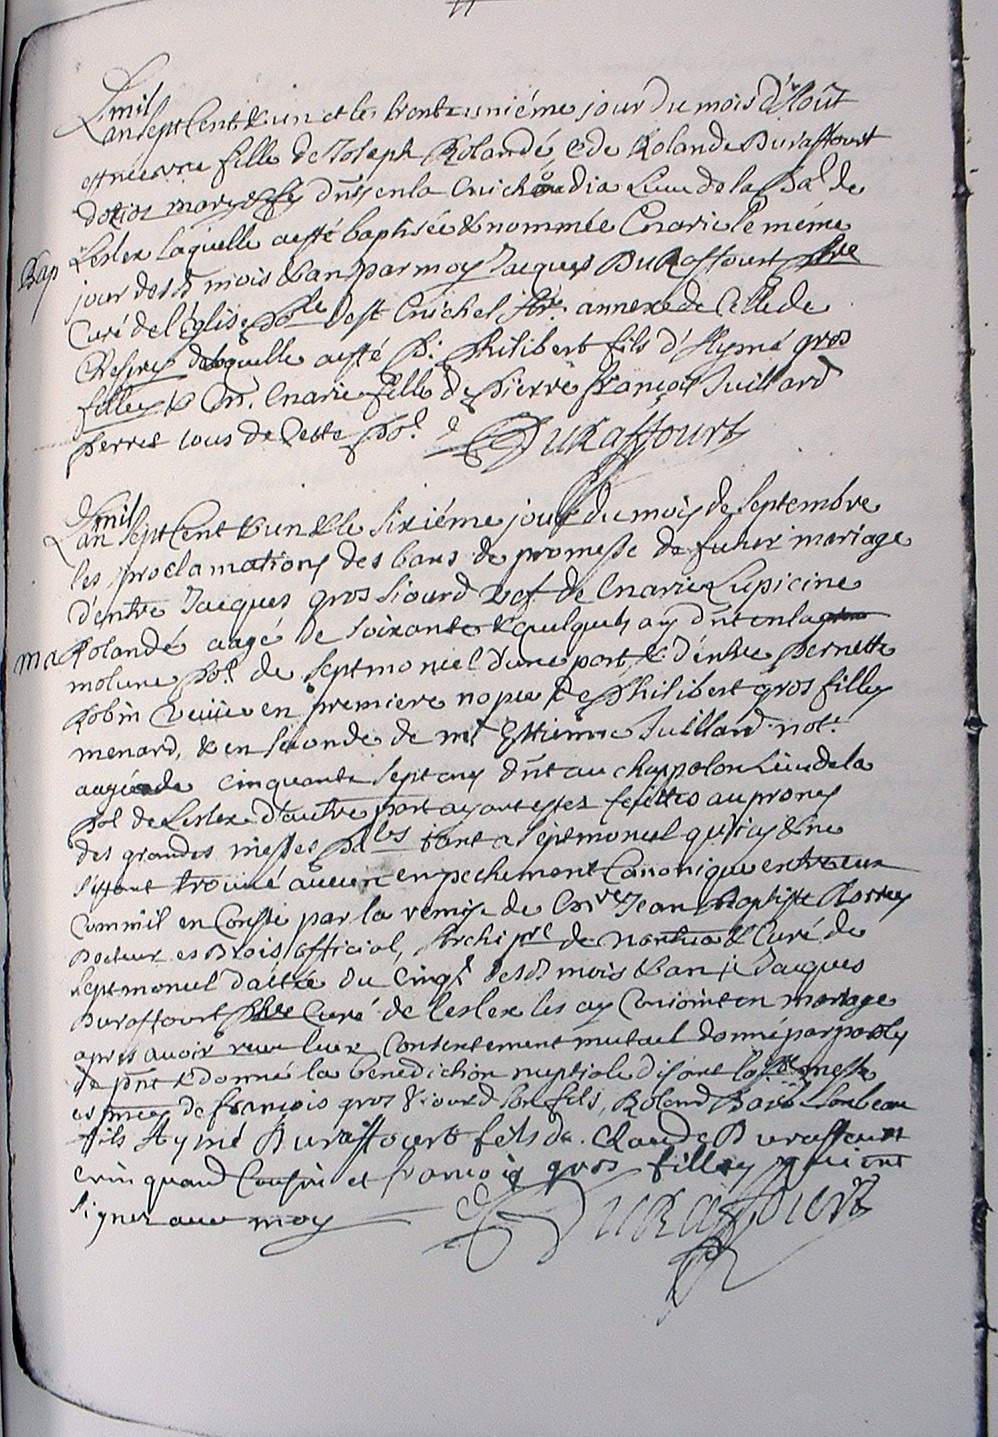 L mil
an sept Cent & un et le trente uniéme jour du mois d'Aoüt
est née une fille de Joseph Rolandé, & de Rolande Duraffourt
mariés
Lesler laquelle a esté baptisée & nommée Marie le méme
Bap
jour desd mois & an par moy Jacques Duraffourt pbre
Curé de l'église de st Michel annexe de Celle de
laquelle a esté P. Philibert fils d'Aymé gros
filley & M. Marie fille de Pierre françois Juillard
perret tous de Cette
Duraffourt
L mil
an Sept Cent & un & le Sixiéme jour du mois de Septembre
les proclamations des bans de promesse de futur mariage
d'entre Jacques gros Siourd vef de Marie Lupicine
ma
Rolandé aagé de Soixante & quelques ans
molune de Septmoncel d'une part, & d'entre Pernette
Robin veuüe en premiere nopce de Philibert gros filley
menard, & en Seconde de Estienne Juillard not.
aagée de cinquante Sept ans au chappelon Lieu de la
de Lesler d'autre part ayant estés feüttes aux prones
des grandes messes tant a Septmoncel qu'icy & ne
s'estant trouué aucun enpechement Canonique entre eux
Comm'il en Conste par la remise de Jean Baptiste
Docteur es Drois official, Archipre de Nantua & Curé de
Septmoncel dattée du Cinqe desd mois & an je Jacques
Duraffourt pbre Curé de Lesler les ay Conioint en mariage
apres auoir receu leur Consentement mutuel donné par paroles
de pñt & donné la benediction nuptiale disant la messe
de francois gros Siourd Son fils, Roland
fils Aymé Duraffourt fils de Claude Duraffourt
Cousin et francois gros filley qui ont
Signez auec moy
Duraffourt